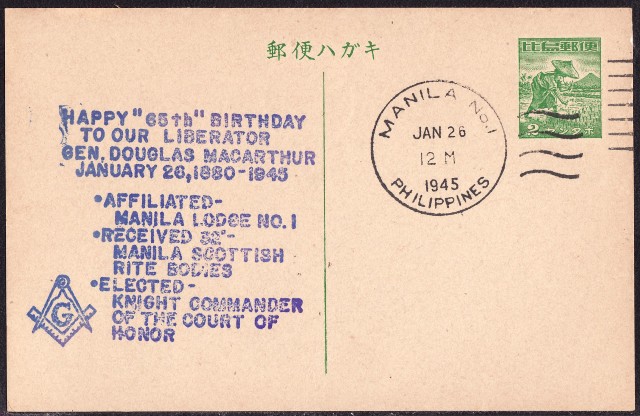 郵便ハガキ
比島郵便
2
HAPPY "65th" BIRTHDAY
TO OUR LIBERATOR
GEN. DOUGLAS MACARTHUR
JANUARY 26, 1880-1945
•AFFILIATED-
MANILA LODGE NO. 1
•RECEIVED 32°-
MANILA SCOTTISH
RITE BODIES
•ELECTED-
KNIGHT COMMANDER
OF THE COURT OF
HONOR
G
MANILA No.1
JAN 26
12 M
1945
PHILIPPINES